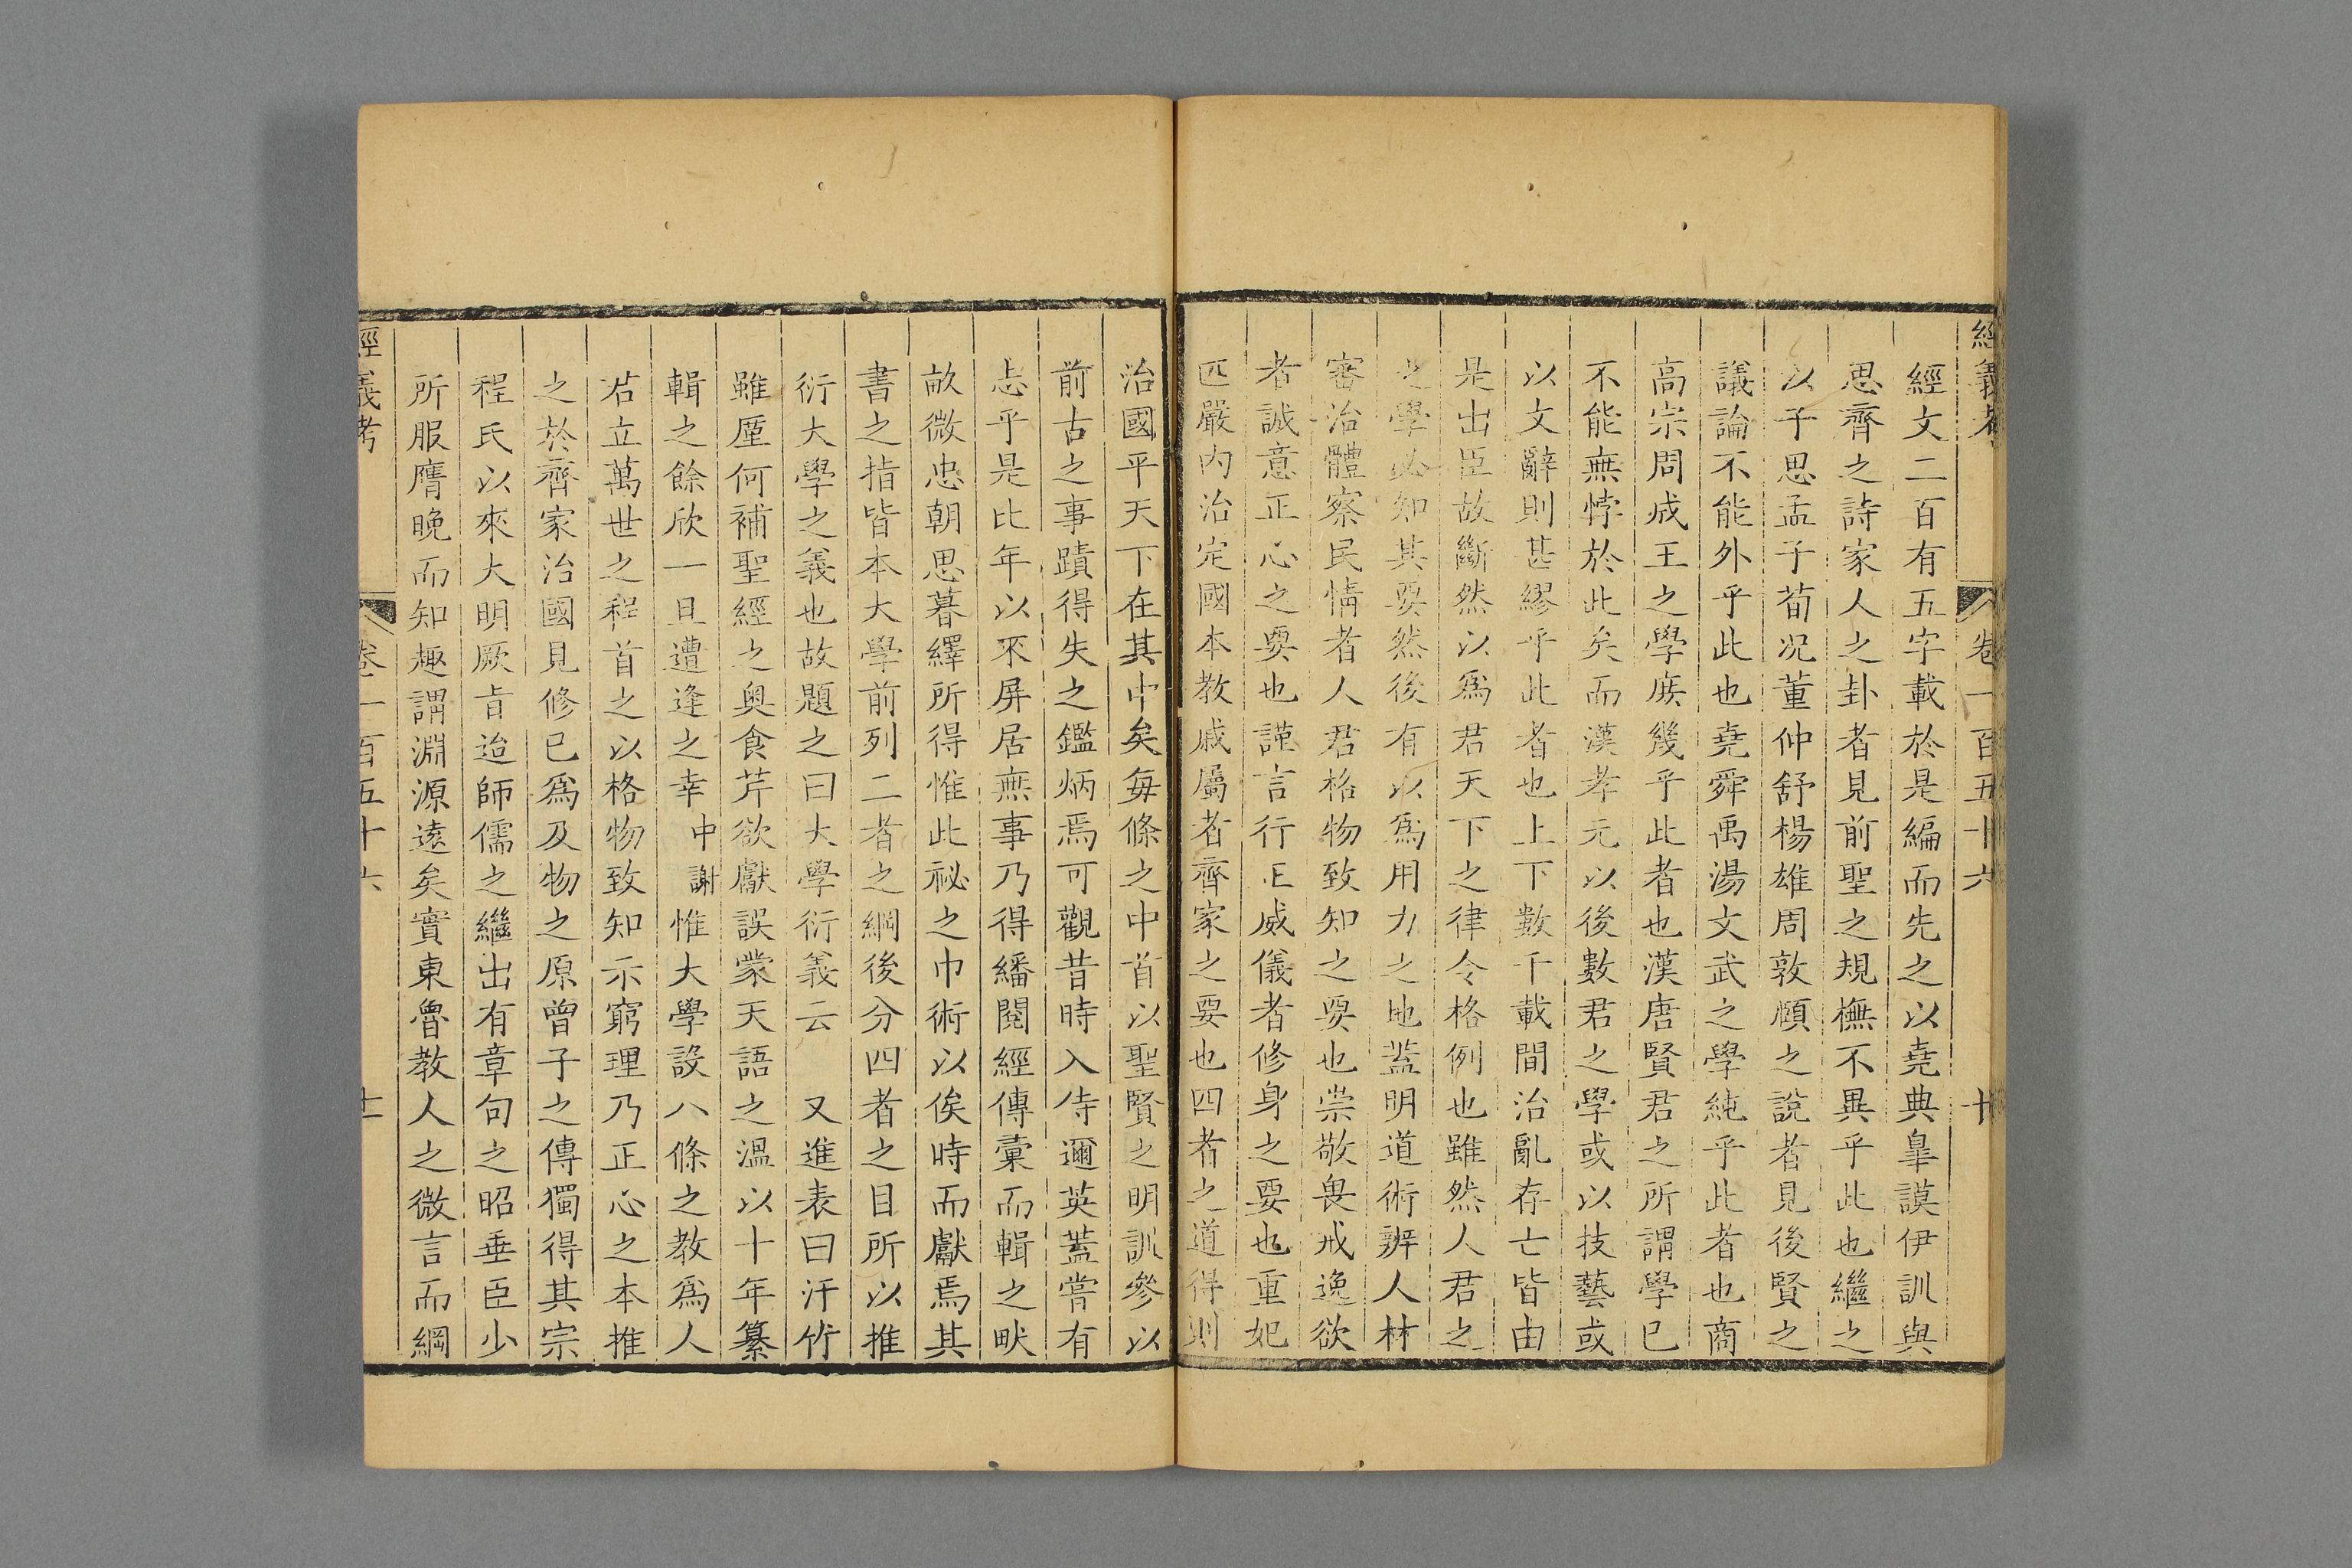 經義考 卷一百五十六 十
經文二百有五字載於是編而先之以堯典臯謨伊訓與
思齊之詩家人之卦者見前聖之規橅不異乎此也繼之
以子思孟子荀況董仲舒楊雄周敦頤之說者見後賢之
議論不能外乎此也堯舜禹湯文武之學純乎此者也商
高宗周成王之學庶幾乎此者也漢唐賢君之所謂學已
不能無悖於此矣而漢孝元以後數君之學或以技藝或
以文辭則甚繆乎此者也上下數千載間治亂存亡皆由
是出臣故斷然以爲君天下之律令格例也雖然人君之
之學必知其要然後有以爲用力之地蓋明道術辨人材
審治體察民情者人君格物致知之要也崇敬畏戒逸欲
者誠意正心之要也謹言行正威儀者修身之要也重妃
匹嚴內治定國本教戚屬者齊家之要也四者之道得則
治國平天下在其中矣每條之中首以聖賢之明訓參以
前古之事蹟得失之鑑炳焉可觀昔時入侍邇英蓋嘗有
志乎是比年以來屏居無事乃得繙閱經傳彚而輯之畎
畝微忠朝思暮繹所得惟此祕之巾術以俟時而獻焉其
書之指皆本大學前列二者之綱後分四者之目所以推
衍大學之義也故題之曰大學衍義云　又進表曰汗竹
雖厪何補聖經之奥食芹欲獻誤蒙天語之溫以十年纂
輯之餘欣一旦遭逢之幸中謝惟大學設八條之教爲人
君立萬世之程首之以格物致知示窮理乃正心之本推
之於齊家治國見修已爲及物之原曾子之傳獨得其宗
程氏以來大明厥旨迨師儒之繼出有章句之昭垂臣少
所服膺晚而知趣謂淵源逺矣實東魯教人之微言而綱
經義考 卷一百五十六 十一